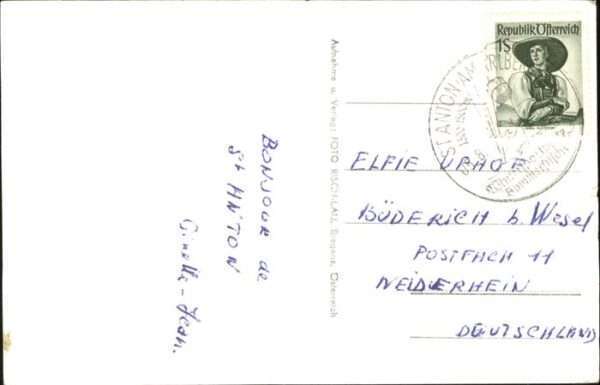 BONJOUR de
St ANTON
Ginette - Jean.
Aufnahme u. Verlag: FOTO RISCHLAU, Bregenz, Österreich
Republik Österreich
1S
ST. ANTON AM ARLBERG
ELFIE
BÜDERICH b. Wesel
POSTFACH 11
NEIDERHEIN
DEUTSCHLAND